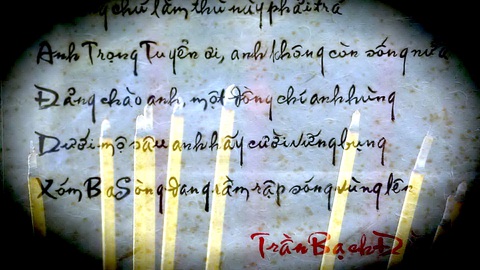 lắm thù này phải trả
Anh Trọng Tuyển ơi, anh không còn sống nữa
Đảng chào anh, một đồng chí anh hùng
Dưới mộ sâu anh hãy cười vững bụng
Xóm Ba Sòng đang rầm rập sóng vùng lên
Trần Bạch Đ